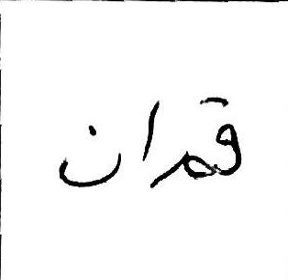 قمران